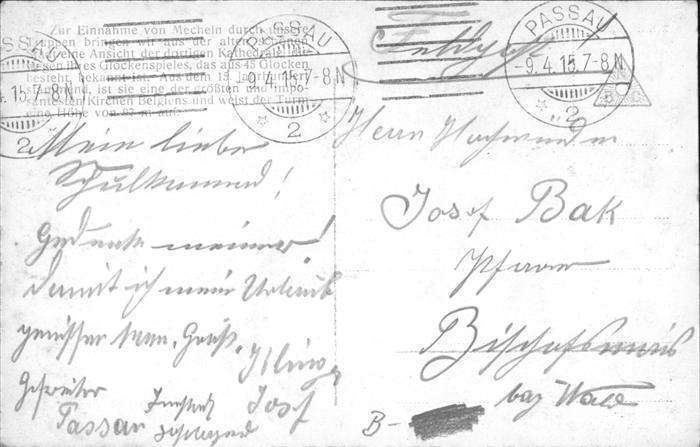 Zur Einnahme von Mecheln durch unsere
Truppen bringen wir aus der alten
eine Ansicht der dortigen Kathedrale
ihres Glockenspieles, das aus 45 Glocken
besteht, bekannt ist. Aus dem 15. Jahrhundert
stammend, ist sie eine der größten und impo-
santesten Kirchen Belgiens und weist der Turm
eine Höhe von 97 m auf.
PASSAU
9.4.15.7-8N
2
PASSAU
9.4.15.7-8N
2
PASSAU
-9.4.15.7-8N
2
Feldpost
Mein lieber
Schulkamerad!
Gedenke meiner!
damit ich mein Urlaub
genießen kann. Gruß,
Josef
Gefreiter
Passau
Herrn Hochwürden
Josef Bak
Pfarrer
Bischofsmais
bay Wald
B-